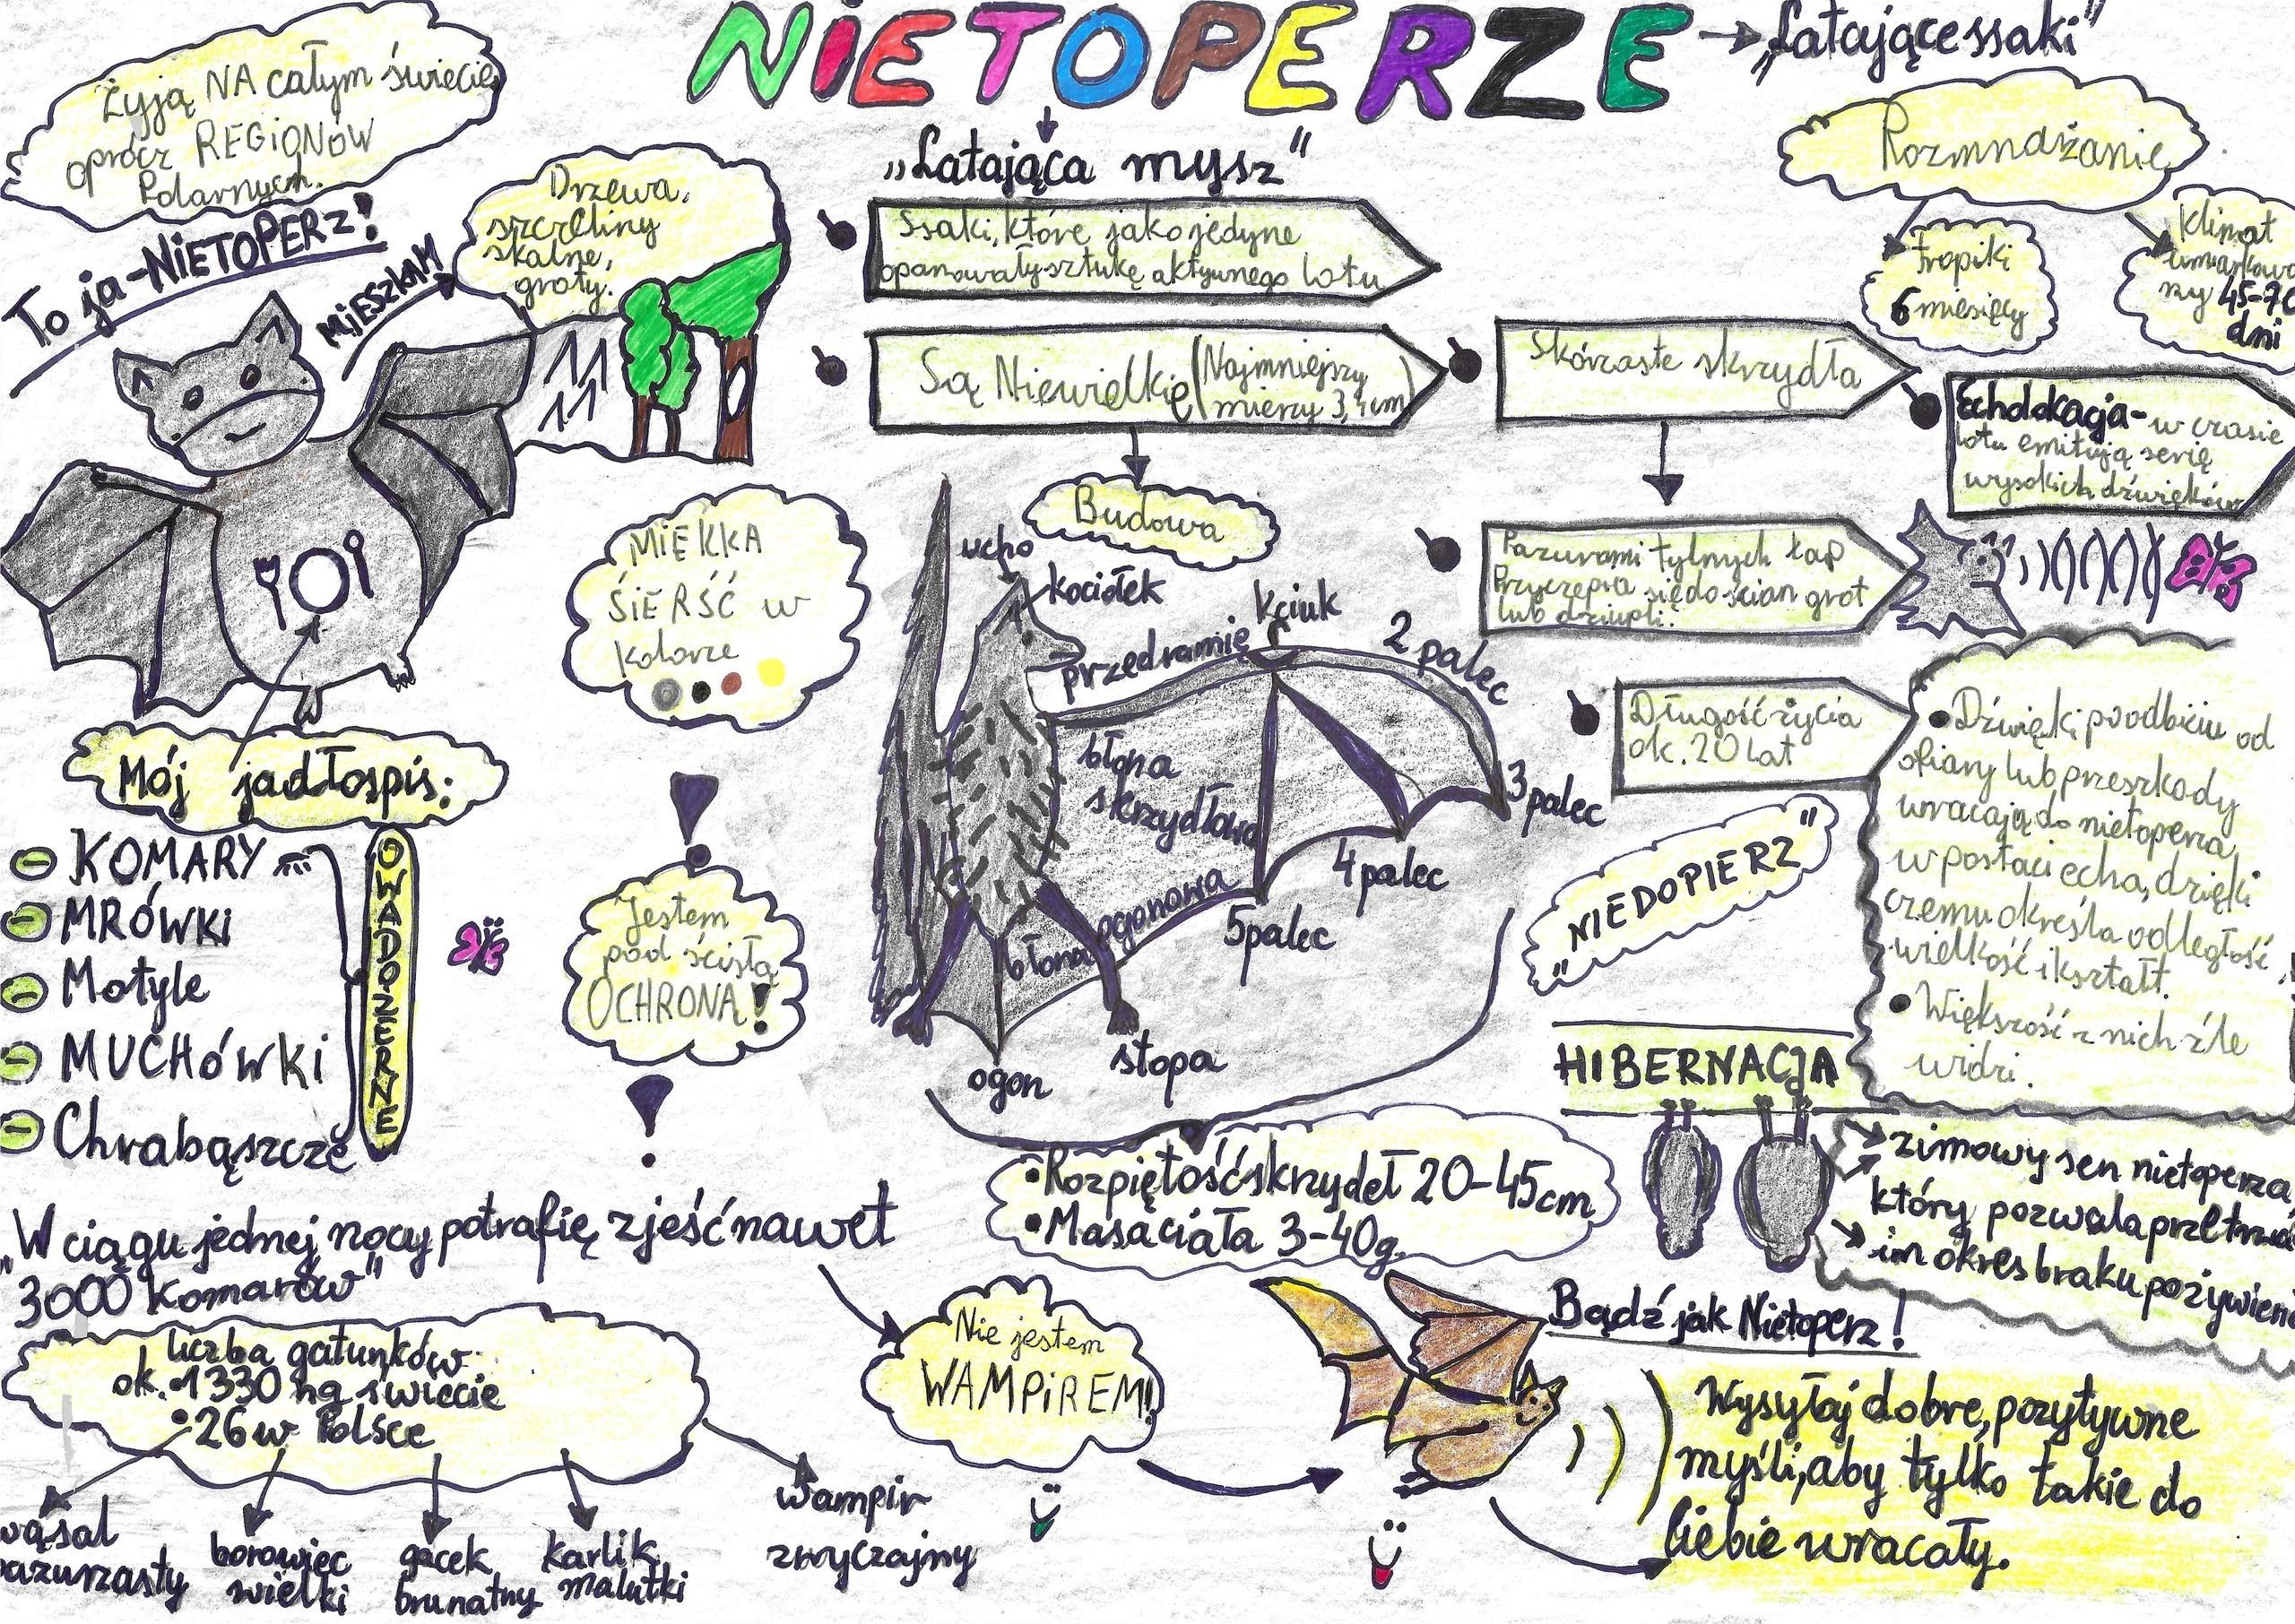 NiETOPERZE
„Latające ssaki"
„Latająca mysz"
Żyją NA całym świecie
oprócz REGiONÓW
Polarnych.
To ja-NiETOPERz!
MiESZKAM
Drzewa,
szczeliny
skalne,
groty.
Ssaki, które jako jedyne
opanowały sztukę aktywnego lotu
Są Niewielkie (Najmniejszy
mierzy 3, cm)
Skórzaste skrzydła
Pazurami tylnych łap
Przyczepia się do ścian grot
lub dziupli.
Długość życia
ok. 20 lat
Rozmnażanie
tropiki
6 miesięcy
Klimat
45-70
dni
Echolokacja- w czasie
lotu emitują serię
wysokich dźwięków
• Dźwięki po odbiciu od
ofiary lub przeszkody
wracają do nietoperza
w postaci echa, dzięki
czemu określa odległość,
wielkość i kształt.
• Większość z nich źle
widzi.
MIĘKKA
SiERŚĆ w
kolorze
Jestem
pod ścisłą
OCHRONĄ!
Budowa
ucho
kociołek
przedramię
kciuk
2 palec
3 palec
4 palec
5 palec
błona
skrzydłowa
błona ogonowa
ogon
stopa
• Rozpiętość skrzydeł 20-45 cm
• Masa ciała 3-40g.
„NIEDOPIERZ"
HIBERNACJA
zimowy sen nietoperza,
który pozwala przetrwać
im okres braku pożywienia
Mój jadłospis:
KOMARY
MRÓWKi
Motyle
MUCHÓWKi
Chrabąszcze
OWADOŻERNE
„W ciągu jednej nocy potrafię zjeść nawet
3000 komarów"
liczba gatunków:
ok. • 1330 na świecie
• 26 w Polsce
wąsal
pazurzasty
borowiec
wielki
gacek
brunatny
karlik
malutki
wampir
zwyczajny
Nie jestem
WAMPiREM!
Bądź jak Nietoperz!
Wysyłaj dobre, pozytywne
myśli, aby tylko takie do
Ciebie wracały.